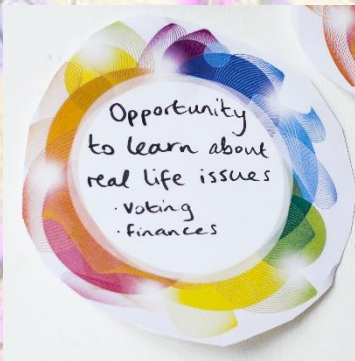 Opportunity
to learn about
real life issues
· Voting
· finances